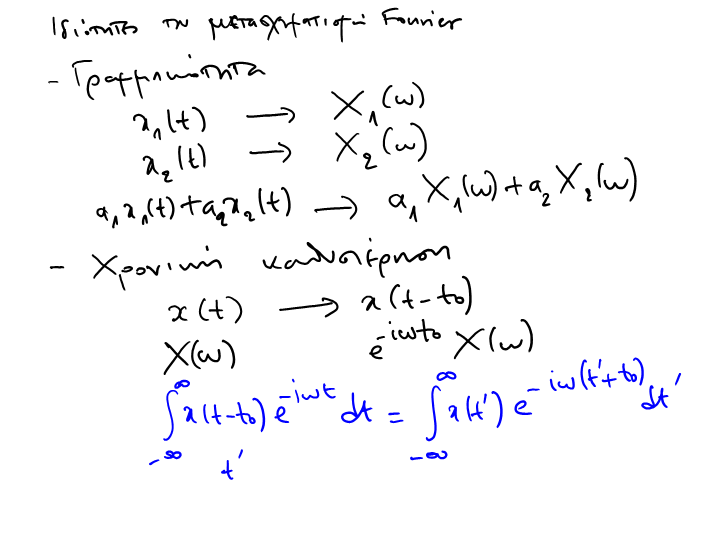 Ιδιότητες του μετασχηματισμού Fourier
- Γραμμικότητα
x₁(t) → X₁(ω)
x₂(t) → X₂(ω)
a₁x₁(t)+a₂x₂(t) → a₁X₁(ω)+a₂X₂(ω)
- Χρονική καθυστέρηση
x(t) → x(t-t₀)
X(ω) e^{-iωt₀} X(ω)
∫_{-∞}^{∞} x(t-t₀) e^{-iωt} dt = ∫_{-∞}^{∞} x(t') e^{-iω(t'+t₀)} dt'
t'